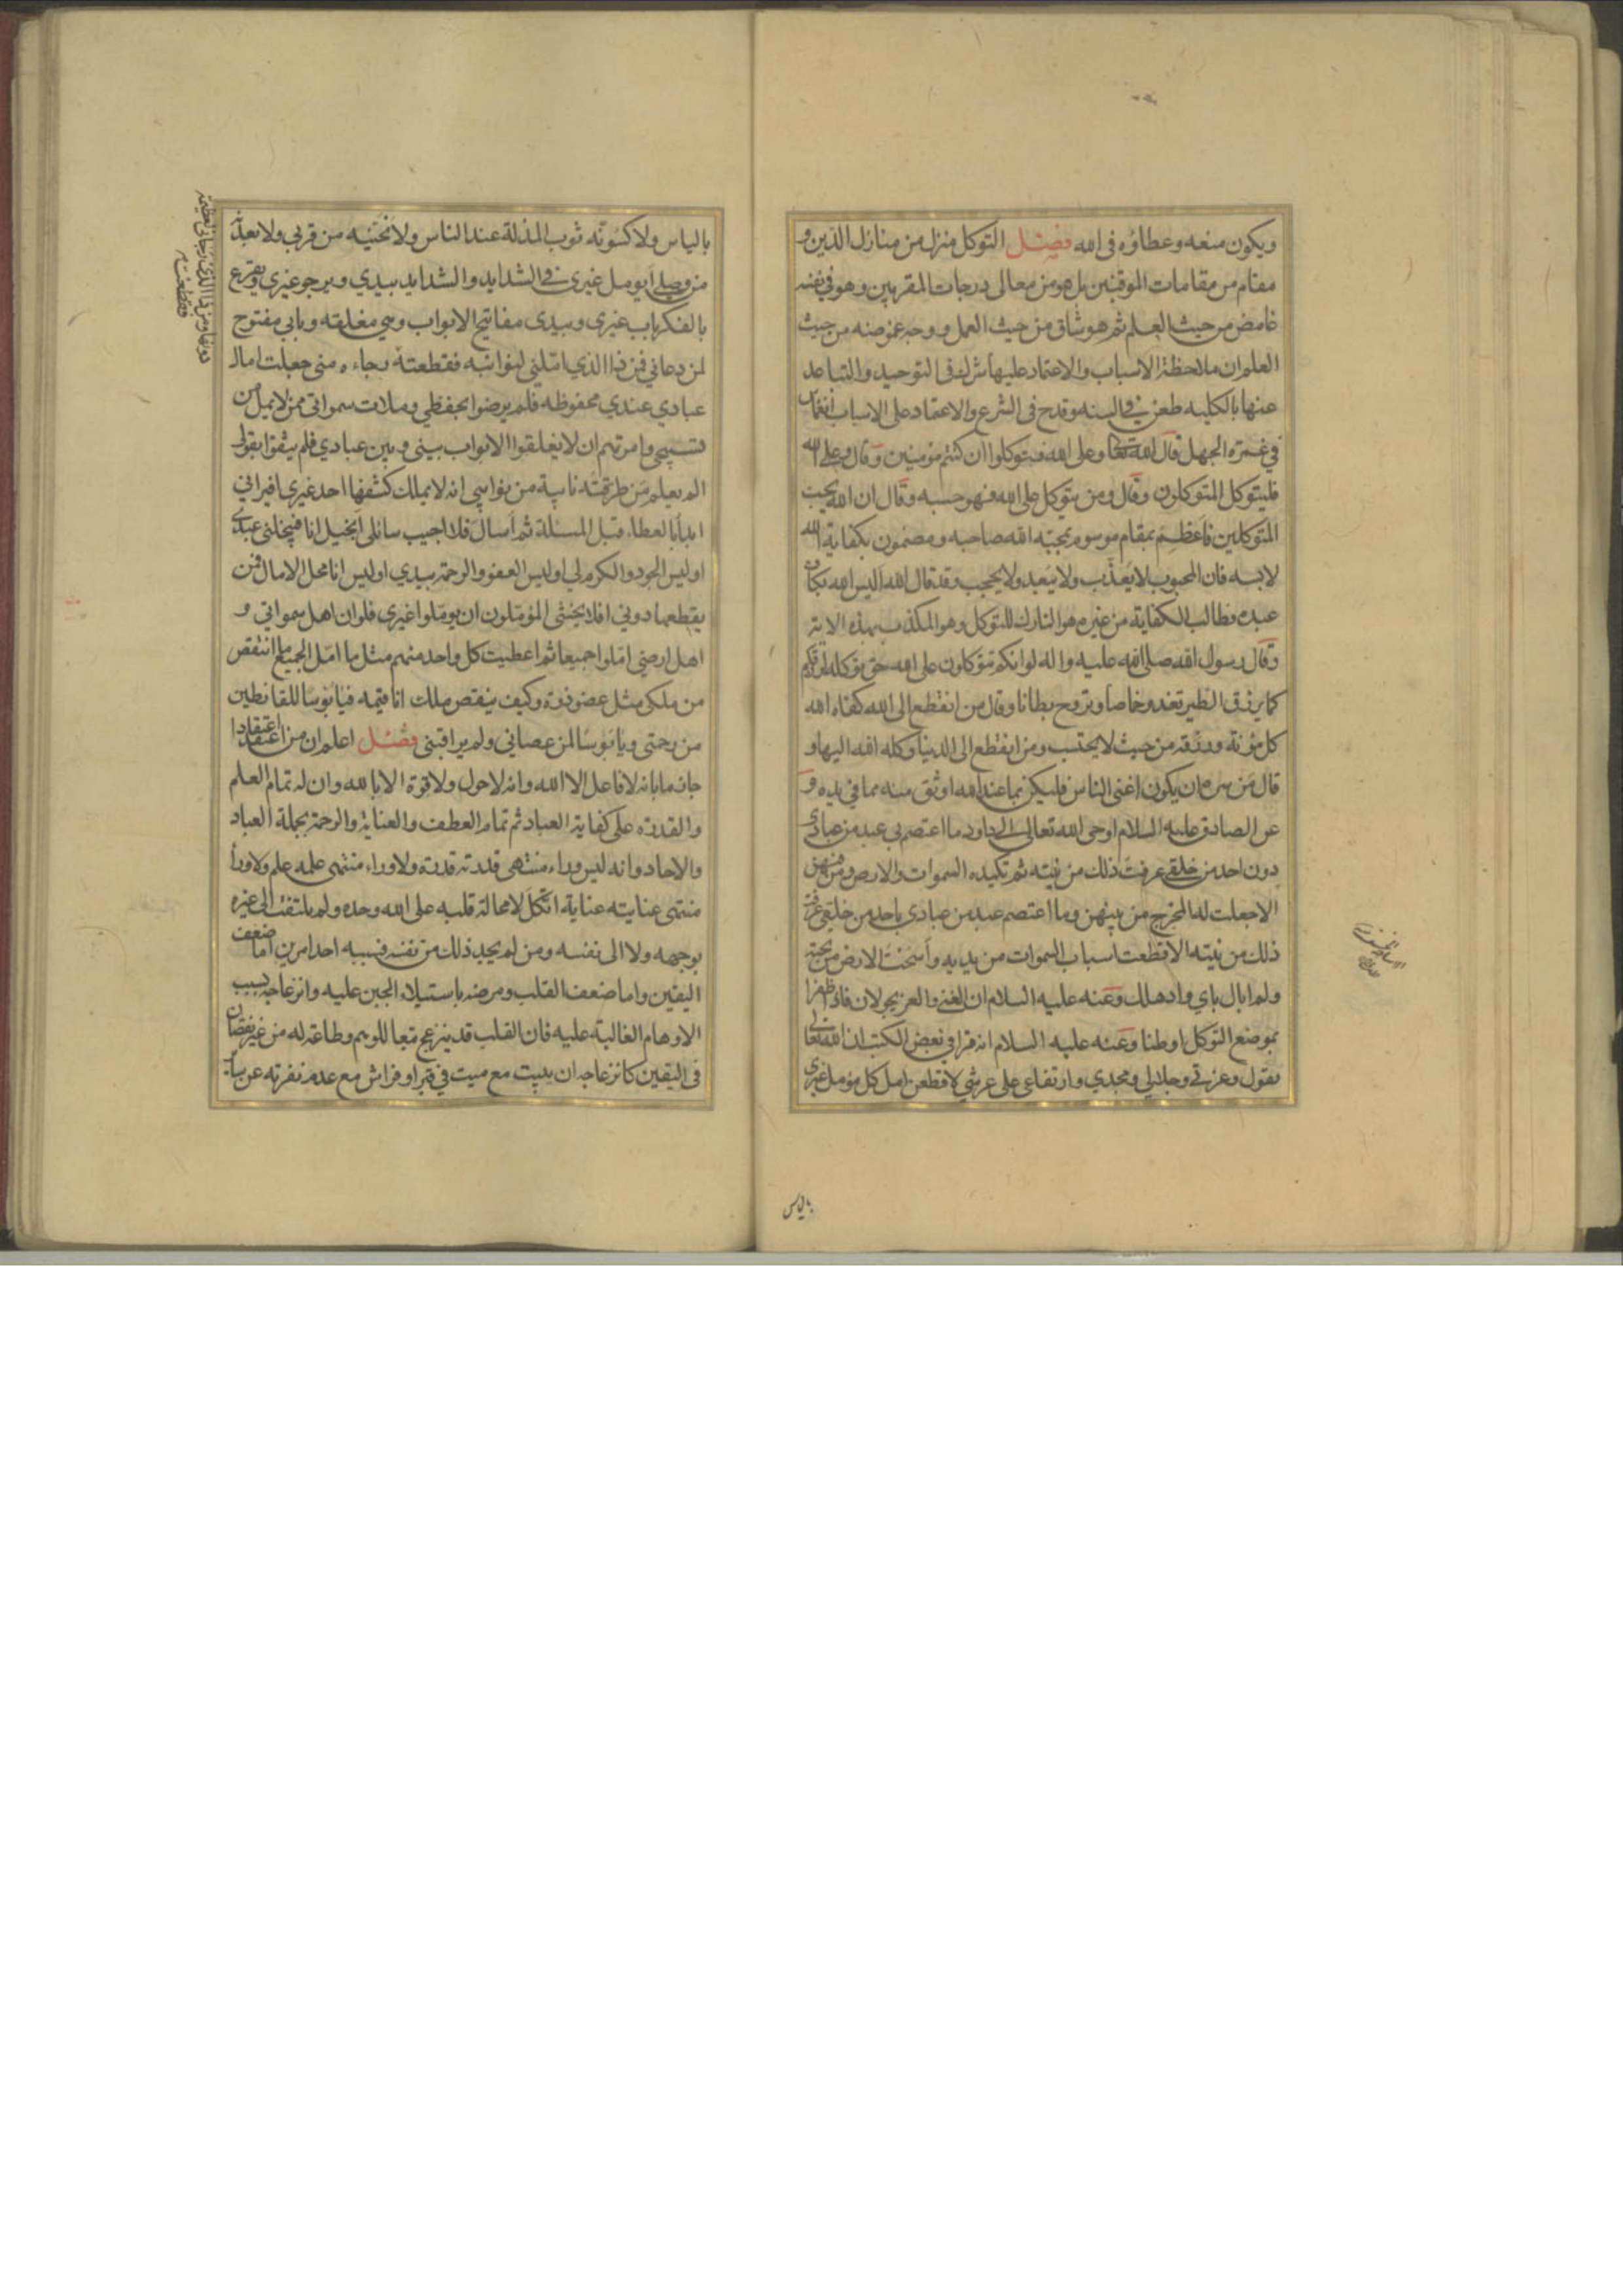 ويكون منعه وعطاؤه في الله فصل التوكل منزل من منازل الدين و
مقام من مقامات الموقنين بل هو من معالي درجات المقربين وهو في نفسه
غامض من حيث العلم ثم هو شاق من حيث العمل ووجه غموضه من حيث
العلم ان ملاحظة الاسباب والاعتماد عليها شرك في التوحيد والتباعد
عنها بالكلية طعن في السنه وقدح في الشرع والاعتماد على الاسباب انغماس
في غمرة الجهل قال الله تعالى وعلى الله فتوكلوا ان كنتم مؤمنين وقال وعلى الله
فليتوكل المتوكلون وقال ومن يتوكل على الله فهو حسبه وقال ان الله يحب
المتوكلين فاعظم بمقام موسوم بمحبة الله صاحبه ومضمون بكفاية الله
لابسه فان المحبوب لا يعذب ولا يبعد ولا يحجب وقد قال الله اليس الله بكاف
عبده فطالب الكفاية من غيره هو التارك للتوكل وهو المكذب بهذه الاية
وقال رسول الله صلى الله عليه واله لو انكم تتوكلون على الله حق توكله لرزقكم
كما يرزق الطير تغدو خماصا وتروح بطانا وقال من انقطع الى الله كفاه الله
كل مؤنة ورزقه من حيث لا يحتسب ومن انقطع الى الدنيا وكله الله اليها و
قال من سره ان يكون اغنى الناس فليكن بما عند الله اوثق منه مما في يده و
عن الصادق عليه السلام اوحى الله تعالى الى داود ما اعتصم بي عبد من عبادي
دون احد من خلقي عرفت ذلك من نيته ثم تكيده السموات والارض ومن فيهن
الا جعلت له المخرج من بينهن وما اعتصم عبد من عبادي باحد من خلقي عرفت
ذلك من نيته الا قطعت اسباب السموات من يديه وأسخت الارض من تحته
ولم ابال باي واد هلك وعنه عليه السلام ان الغنى والعز يجولان فاذا ظفرا
بموضع التوكل اوطنا وعنه عليه السلام انه قرا في بعض الكتب ان الله تعالى
يقول وعزتي وجلالي ومجدي وارتفاعي على عرشي لاقطعن امل كل مؤمل غيري
بالياس
بالياس ولاكسونه ثوب المذلة عند الناس ولانحينه من قربي ولابعدنه
من وصلي أيومل غيري في الشدايد والشدايد بيدي ويرجو غيري ويقرع
بالفكر باب غيري وبيدي مفاتيح الابواب وهي مغلقه وبابي مفتوح
لمن دعاني فمن ذا الذي املني لنوائبه فقطعته رجاءه مني جعلت امال
عبادي عندي محفوظه فلم يرضوا بحفظي وملات سمواتي ممن لا يمل من
تسبيحي وامرتهم ان لا يغلقوا الابواب بيني وبين عبادي فلم يثقوا بقولي
الم يعلم من طرقته نايبة من نوائبي انه لا يملك كشفها احد غيري افيراني
ابدأ بالعطاء قبل المسئلة ثم أسأل فلا اجيب سائلي أبخيل انا فيبخلني عبدي
اوليس الجود والكرم لي اوليس العفو والرحمة بيدي اوليس انا محل الامال فمن
يقطعها دوني افلا يخشى المؤملون ان يؤملوا غيري فلو ان اهل سمواتي و
اهل ارضي املوا جميعا ثم اعطيت كل واحد منهم مثل ما امل الجميع ما انتقص
من ملكي مثل عضو ذرة وكيف ينقص ملك انا قيمه فيا بؤسا للقانطين
من رحمتي ويا بؤسا لمن عصاني ولم يراقبني فصل اعلم ان من اعتقد اعتقادا
جازما بانه لا فاعل الا الله وانه لا حول ولا قوة الا بالله وان له تمام العلم
والقدرة على كفاية العباد ثم تمام العطف والعناية والرحمة بجملة العباد
والاحاد وانه ليس وراء منتهى قدرته قدرة ولا وراء منتهى علمه علم ولا وراء
منتهى عنايته عناية اتكل لا محالة قلبه على الله وحده ولم يلتفت الى غيره
بوجهه ولا الى نفسه ومن لم يجد ذلك من نفسه فسببه احد امرين اما ضعف
اليقين واما ضعف القلب ومرضه باستيلاء الجبن عليه وانزعاجه بسبب
الاوهام الغالبة عليه فان القلب قد ينزعج تبعا للوهم وطاعة له من غير نقصان
في اليقين كانزعاجه ان يبيت مع ميت في قبر او فراش مع عدم نفرته عن ساير
دونها ومن ذا الذي رجاني لعظيمة
فقطعت